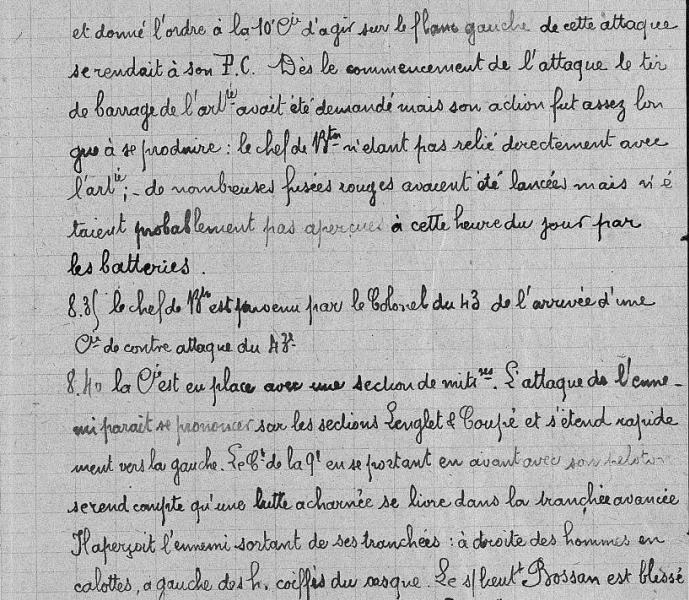 et donné l'ordre à la 10e Cie d'agir sur le flanc gauche de cette attaque
se rendait à son P.C. Dès le commencement de l'attaque le tir
de barrage de l'artie avait été demandé mais son action fut assez lon
gue à se produire : le chef de Bton n'étant pas relié directement avec
l'artie ; - de nombreuses fusées rouges avaient été lancées mais n'é
taient probablement pas aperçues à cette heure du jour par
les batteries.
8.35 le chef de Bton est prévenu par le Colonel du 43 de l'arrivée d'une
Cie de contre attaque du 43e.
8.40 la Cie est en place avec une section de mitses. L'attaque de l'enne-
mi parait se prononcer sur les sections Lenglet & Coupé et s'étend rapide
ment vers la gauche. Le Ct de la 9e en se portant en avant avec son peloton
se rend compte qu'une lutte acharnée se livre dans la tranchée avancée
Il aperçoit l'ennemi sortant de ses tranchées : à droite des hommes en
calottes, a gauche des h. coiffés du casque. Le s/lieutt Bossan est blessé